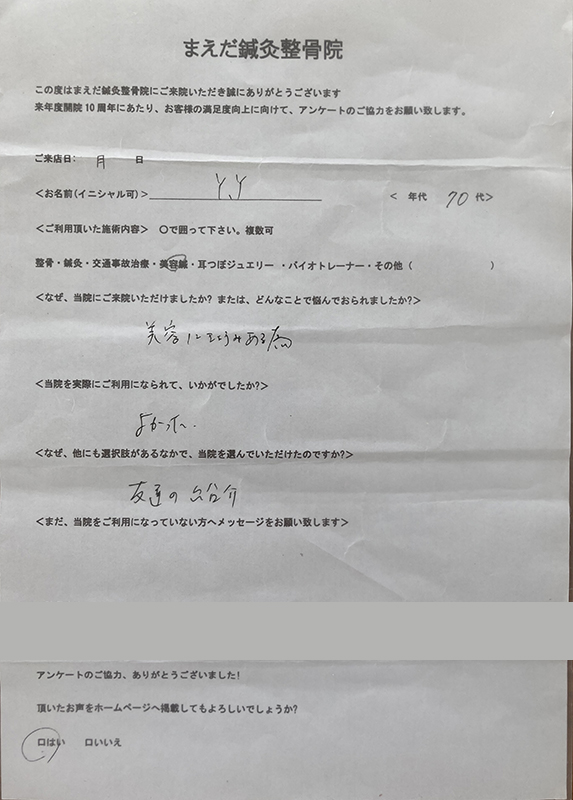 まえだ鍼灸整骨院
この度はまえだ鍼灸整骨院にご来院いただき誠にありがとうございます
来年度開院10周年にあたり、お客様の満足度向上に向けて、アンケートのご協力をお願い致します。
ご来店日： 月 日
＜お名前(イニシャル可)＞ Y.Y ＜ 年代 70代＞
＜ご利用頂いた施術内容＞ 〇で囲って下さい。複数可
整骨・鍼灸・交通事故治療・美容鍼・耳つぼジュエリー ・バイオトレーナー・その他（ ）
＜なぜ、当院にご来院いただけましたか? または、どんなことで悩んでおられましたか?＞
美容にきょうみある為
＜当院を実際にご利用になられて、いかがでしたか?＞
よかった.
＜なぜ、他にも選択肢があるなかで、当院を選んでいただけたのですか?＞
友達の紹介
＜まだ、当院をご利用になっていない方へメッセージをお願い致します＞
アンケートのご協力、ありがとうございました!
頂いたお声をホームページへ掲載してもよろしいでしょうか?
口はい 口いいえ